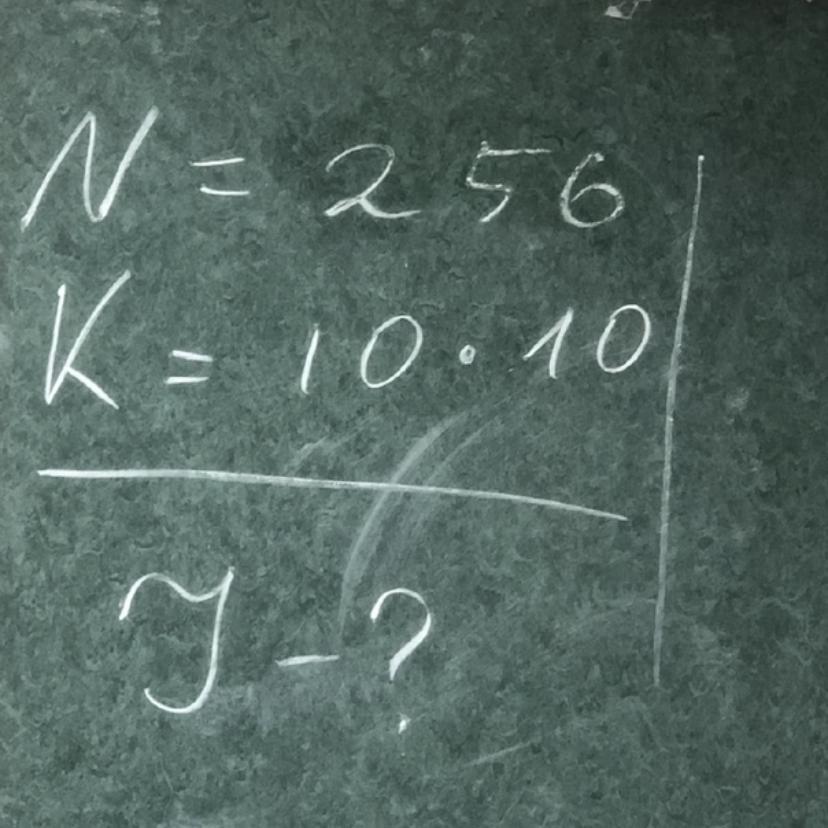 N = 256
K = 10 · 10
J - ?